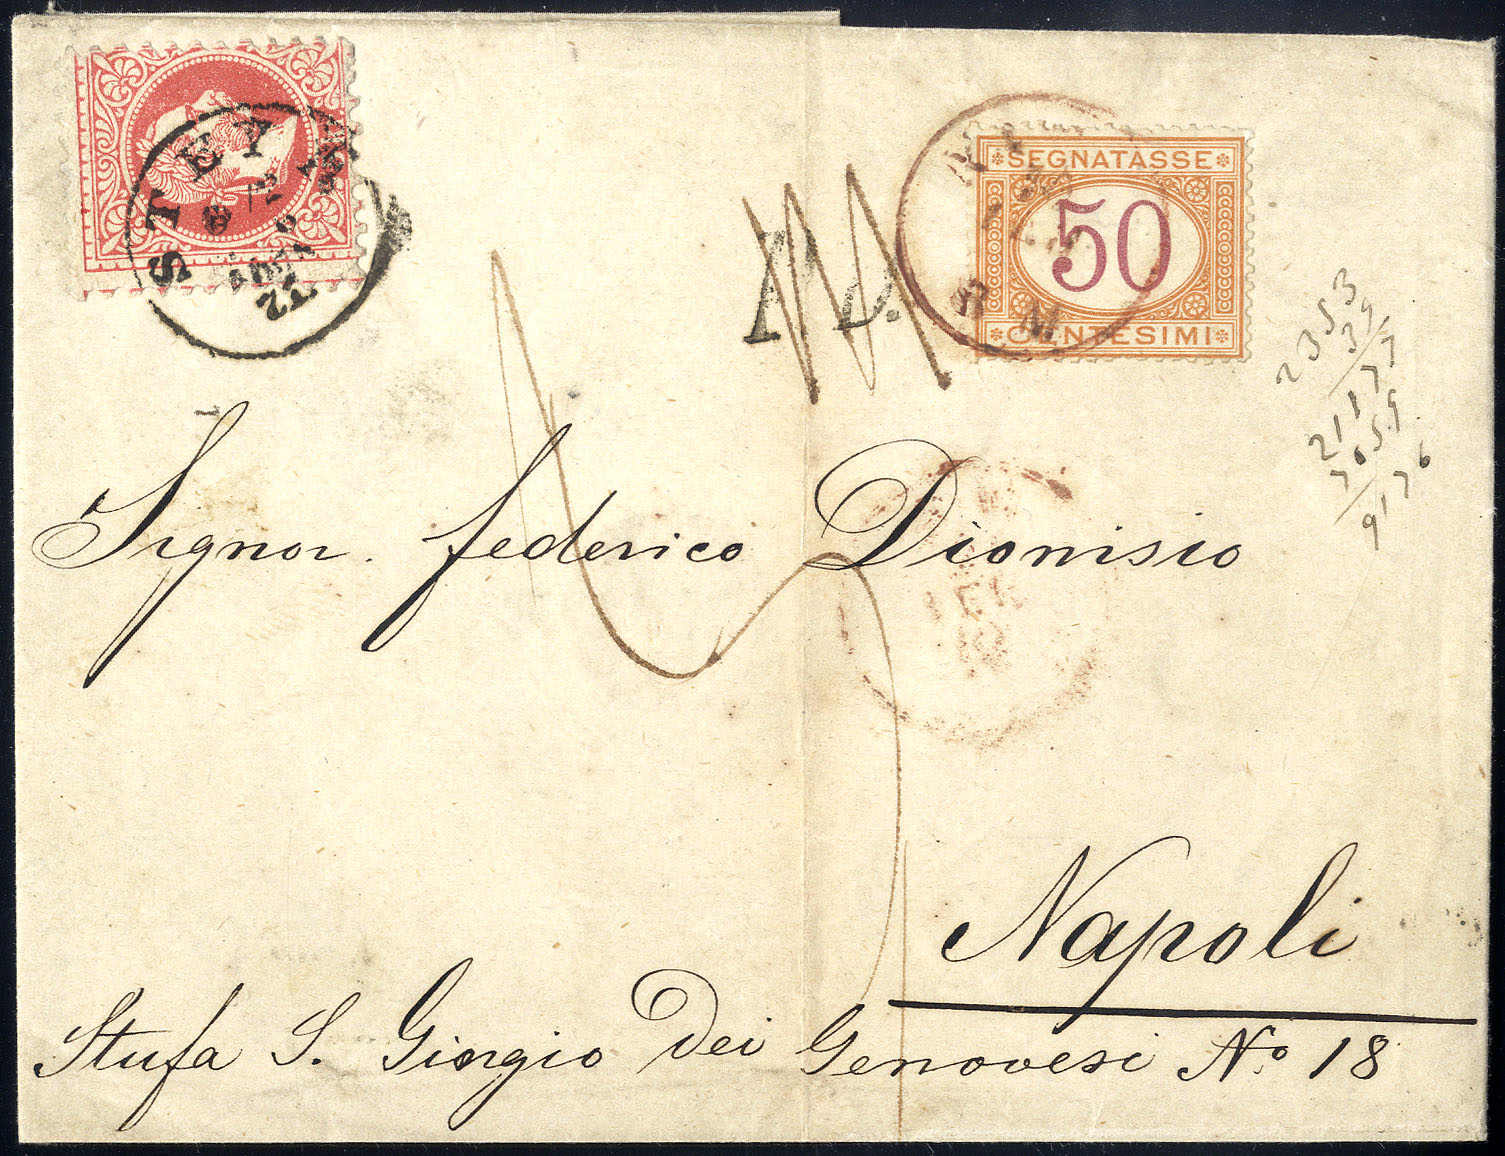 STEYR
72
P.D.
SEGNATASSE
50
CENTESIMI
8 M
2353
39
21177
7059
9176
Signor Federico Dionisio
Napoli
Stufa S. Giorgio Dei Genovesi No 18